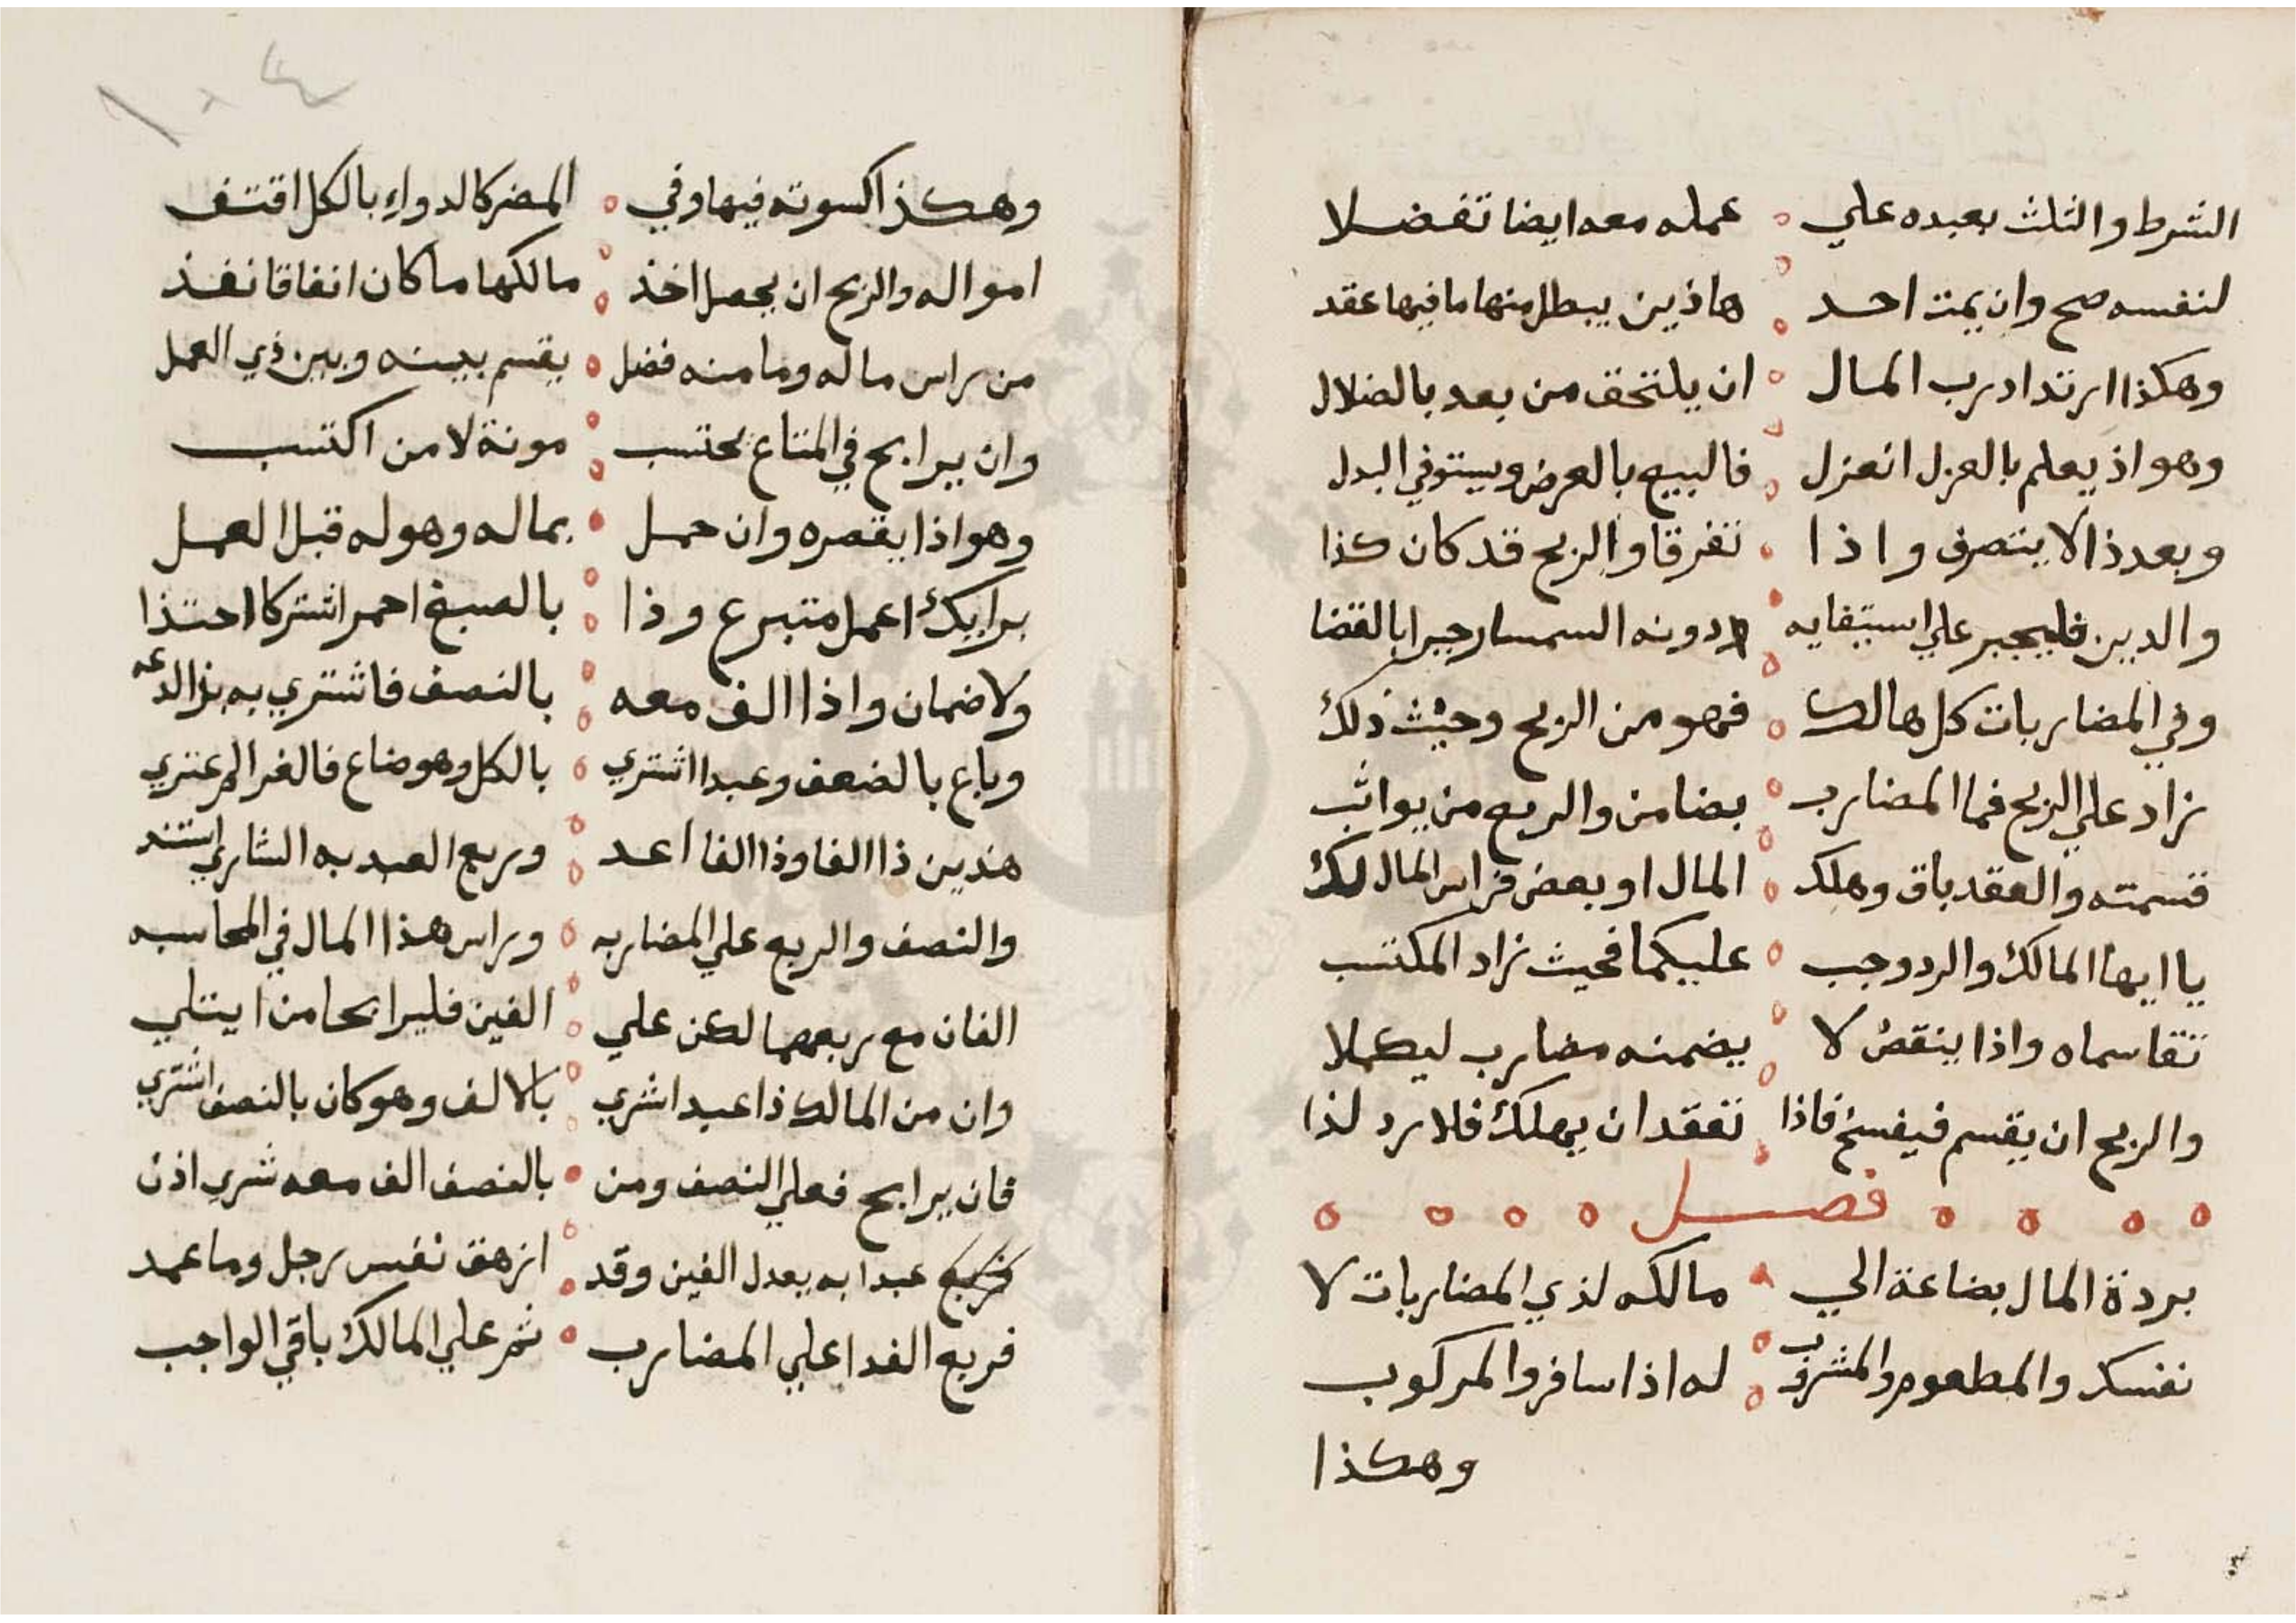 الشرط والثلث بعبده علي ٥ عمله معه ايضا تفضلا
لنفسه صح وان يمت احد ٥ هاذين يبطل منها ما فيها عقد
وهكذا ارتداد رب المال ٥ ان يلتحق من بعد بالضلال
وهو اذ يعلم بالعزل انعزل ٥ فالبيع بالعرض ويستوفي البدل
وبعد ذا لا يتصرف واذا ٥ تفرقا والربح قد كان كذا
والدين فليجبر علي استيفايه ٥ دونه السمسار جبرا بالقضا
وفي المضاربات كل هالك ٥ فهو من الربح وحيث ذلك
زاد علي الربح فما المضارب ٥ بضامن والربح من يواثب
قسمته والعقد باق وهلك ٥ المال او بعض فراس المال لك
يا ايها المالك والرد وجب ٥ عليكما فحيث زاد المكتسب
تقاسماه واذا ينقص لا ٥ يضمنه مضارب ليكملا
والربح ان يقسم فيفسخ فاذا ٥ تعقد ان يهلك فلا رد لذا
٥ ٥ ٥ ٥ فصل ٥ ٥ ٥ ٥
بردة المال بضاعة الي ٥ مالكه لذي المضاربات لا
نفسد والمطعوم والمشروب ٥ له اذا سافر والمركوب
وهكذا
١٠٤
وهكذا كسوته فيها وفي ٥ المضر كالدواء بالكل اقتف
امواله والربح ان يحصل اخذ ٥ مالكها ما كان انفاقا نفذ
من راس ماله وما منه فضل ٥ يقسم بينه وبين ذي العمل
وان يرابح في المتاع يحتسب ٥ مونة لا من اكتسب
وهو اذا يقصره وان حمل ٥ بماله وهو له قبل العمل
برايك اعمل متبرع وذا ٥ بالصبغ احمر اشتركا احتذا
ولا ضمان واذا الف معه ٥ بالنصف فاشتري به بز الدعه
وباع بالضعف وعبدا اشتري ٥ بالكل وهو ضاع فالغرم عتري
هذين ذا الفا وذا الفا اعد ٥ وربع العبد به الشاري استند
والنصف والربع علي المضاربه ٥ وراس هذا المال في المحاسبه
الفان مع ربعهما لكن علي ٥ الفين فليرابحا من ابتلي
وان من المالك ذا عبدا شري ٥ بالالف وهو كان بالنصف اشتري
فان يرابح فعلي النصف ومن ٥ بالنصف الف معه شري اذن
عبدا به يعدل الفين وقد ٥ ازهق نفس رجل وما عمد
فربع الفدا علي المضارب ٥ ثم علي المالك باقي الواجب